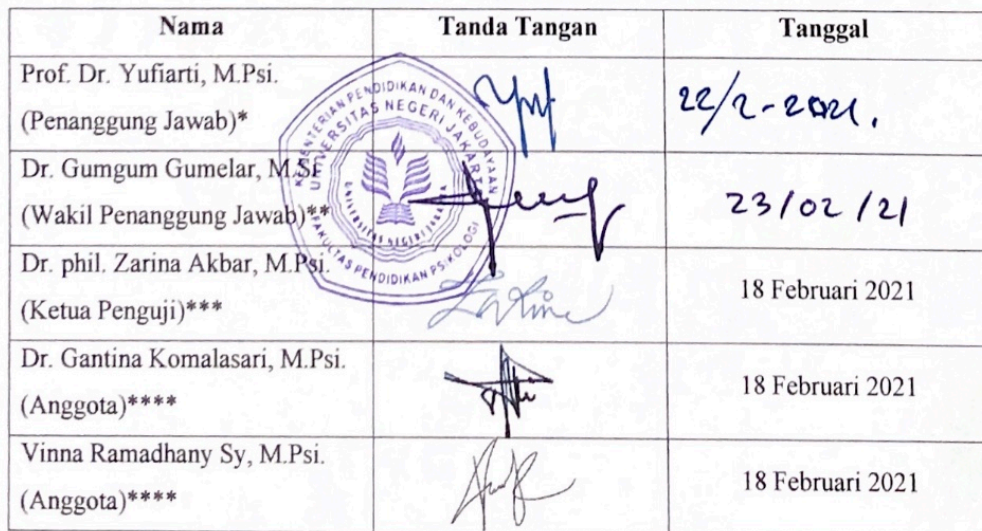 Nama Tanda Tangan Tanggal
Prof. Dr. Yufiarti, M.Psi.
(Penanggung Jawab)*
22/2-2021.
Dr. Gumgum Gumelar, M.Si
(Wakil Penanggung Jawab)**
23/02/21
Dr. phil. Zarina Akbar, M.Psi.
(Ketua Penguji)***
18 Februari 2021
Dr. Gantina Komalasari, M.Psi.
(Anggota)****
18 Februari 2021
Vinna Ramadhany Sy, M.Psi.
(Anggota)****
18 Februari 2021
KEMENTERIAN PENDIDIKAN DAN KEBUDAYAAN
UNIVERSITAS NEGERI JAKARTA
FAKULTAS PENDIDIKAN PSIKOLOGI